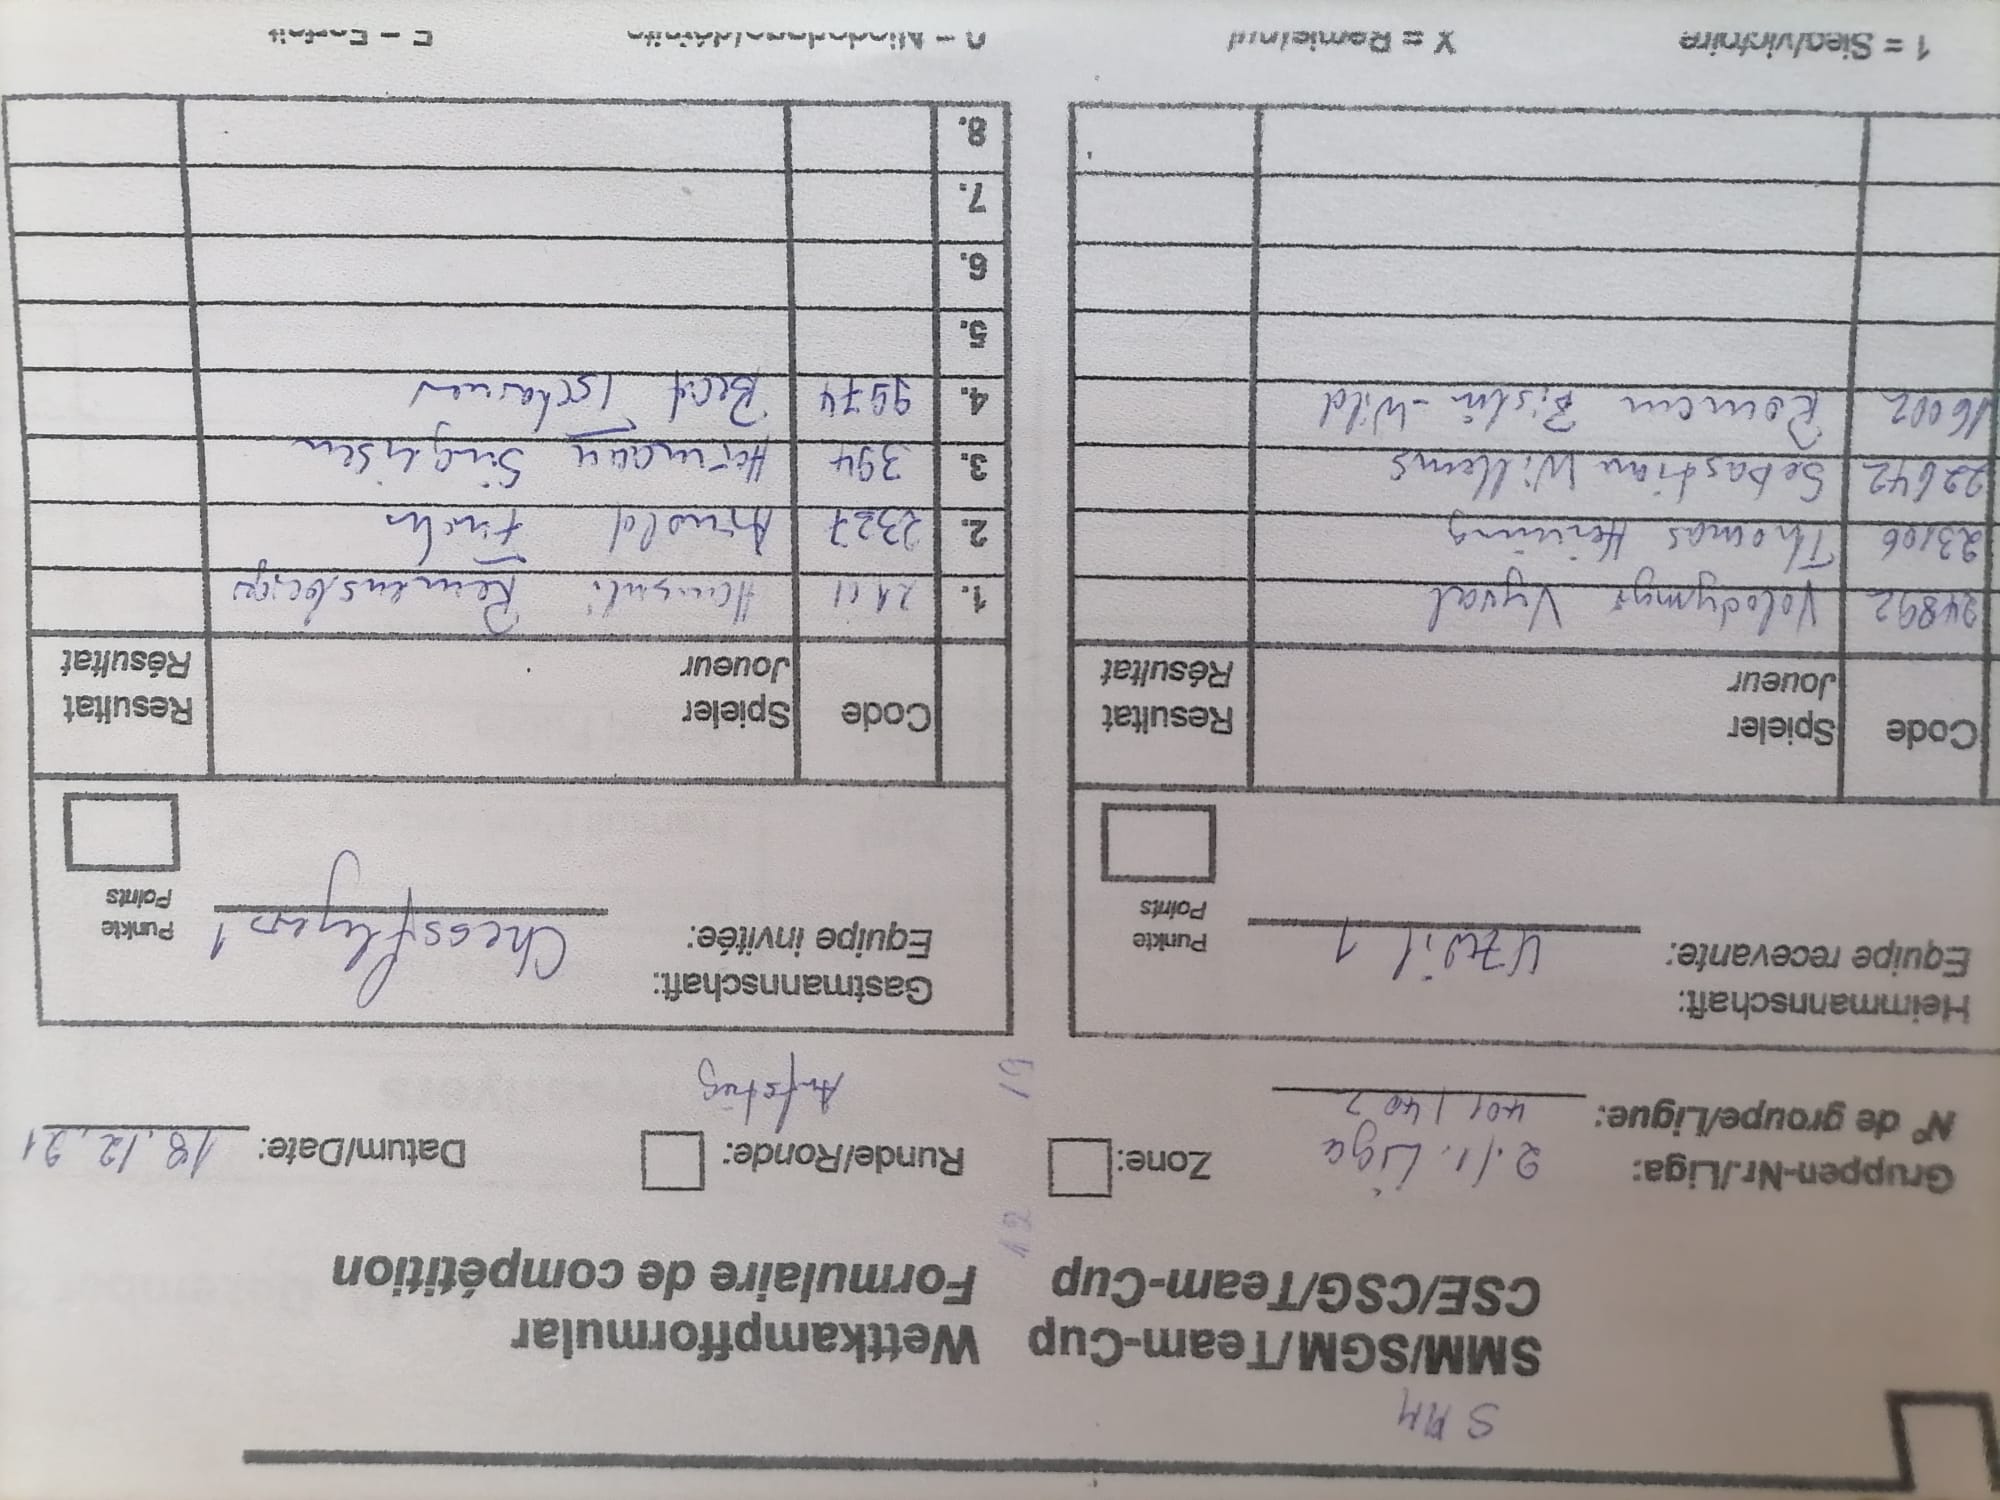 SMM
SMM/SGM/Team-Cup Wettkampfformular
CSE/CSG/Team-Cup Formulaire de compétition
12
Gruppen-Nr./Liga: 2./1. Liga Zone: Runde/Ronde: Datum/Date: 18.12.21
N° de groupe/Ligue: 401/402 Aufstieg
51
Heimmannschaft:
Equipe recevante: Uzwil 1
Punkte
Points
Gastmannschaft:
Equipe invitée: Chessflyers 1
Punkte
Points
Code Spieler Resultat Code Spieler Resultat
Joueur Résultat Joueur Résultat
24892 Volodymyr Vyval 1. 2101 Hansueli Remensberger
23106 Thomas Heining 2. 2327 Arnold Fuchs
22642 Sebastian Willems 3. 394 Hermann Singeisen
16002 Roman Zistin-Wild 4. 9974 Beat Tscharner
5.
6.
7.
8.
1 = Sieg/victoire X = Remis/nul 0 = Niederlage/défaite F = Forfait